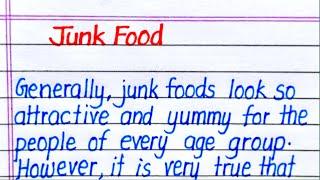 Junk Food
Generally, junk foods look so
attractive and yummy for the
people of every age group.
However, it is very true that